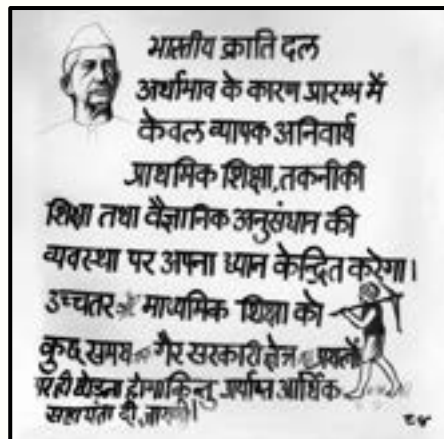 भारतीय क्रांति दल
अर्थाभाव के कारण प्रारम्भ में
केवल व्यापक अनिवार्य
प्राथमिक शिक्षा, तकनीकी
शिक्षा तथा वैज्ञानिक अनुसंधान की
व्यवस्था पर अपना ध्यान केन्द्रित करेगा।
उच्चतर माध्यमिक शिक्षा को
कुछ समय गैर सरकारी क्षेत्र प्रयत्नों
पर ही छोड़ना होगा किन्तु पर्याप्त आर्थिक
सहायता दी जाएगी।